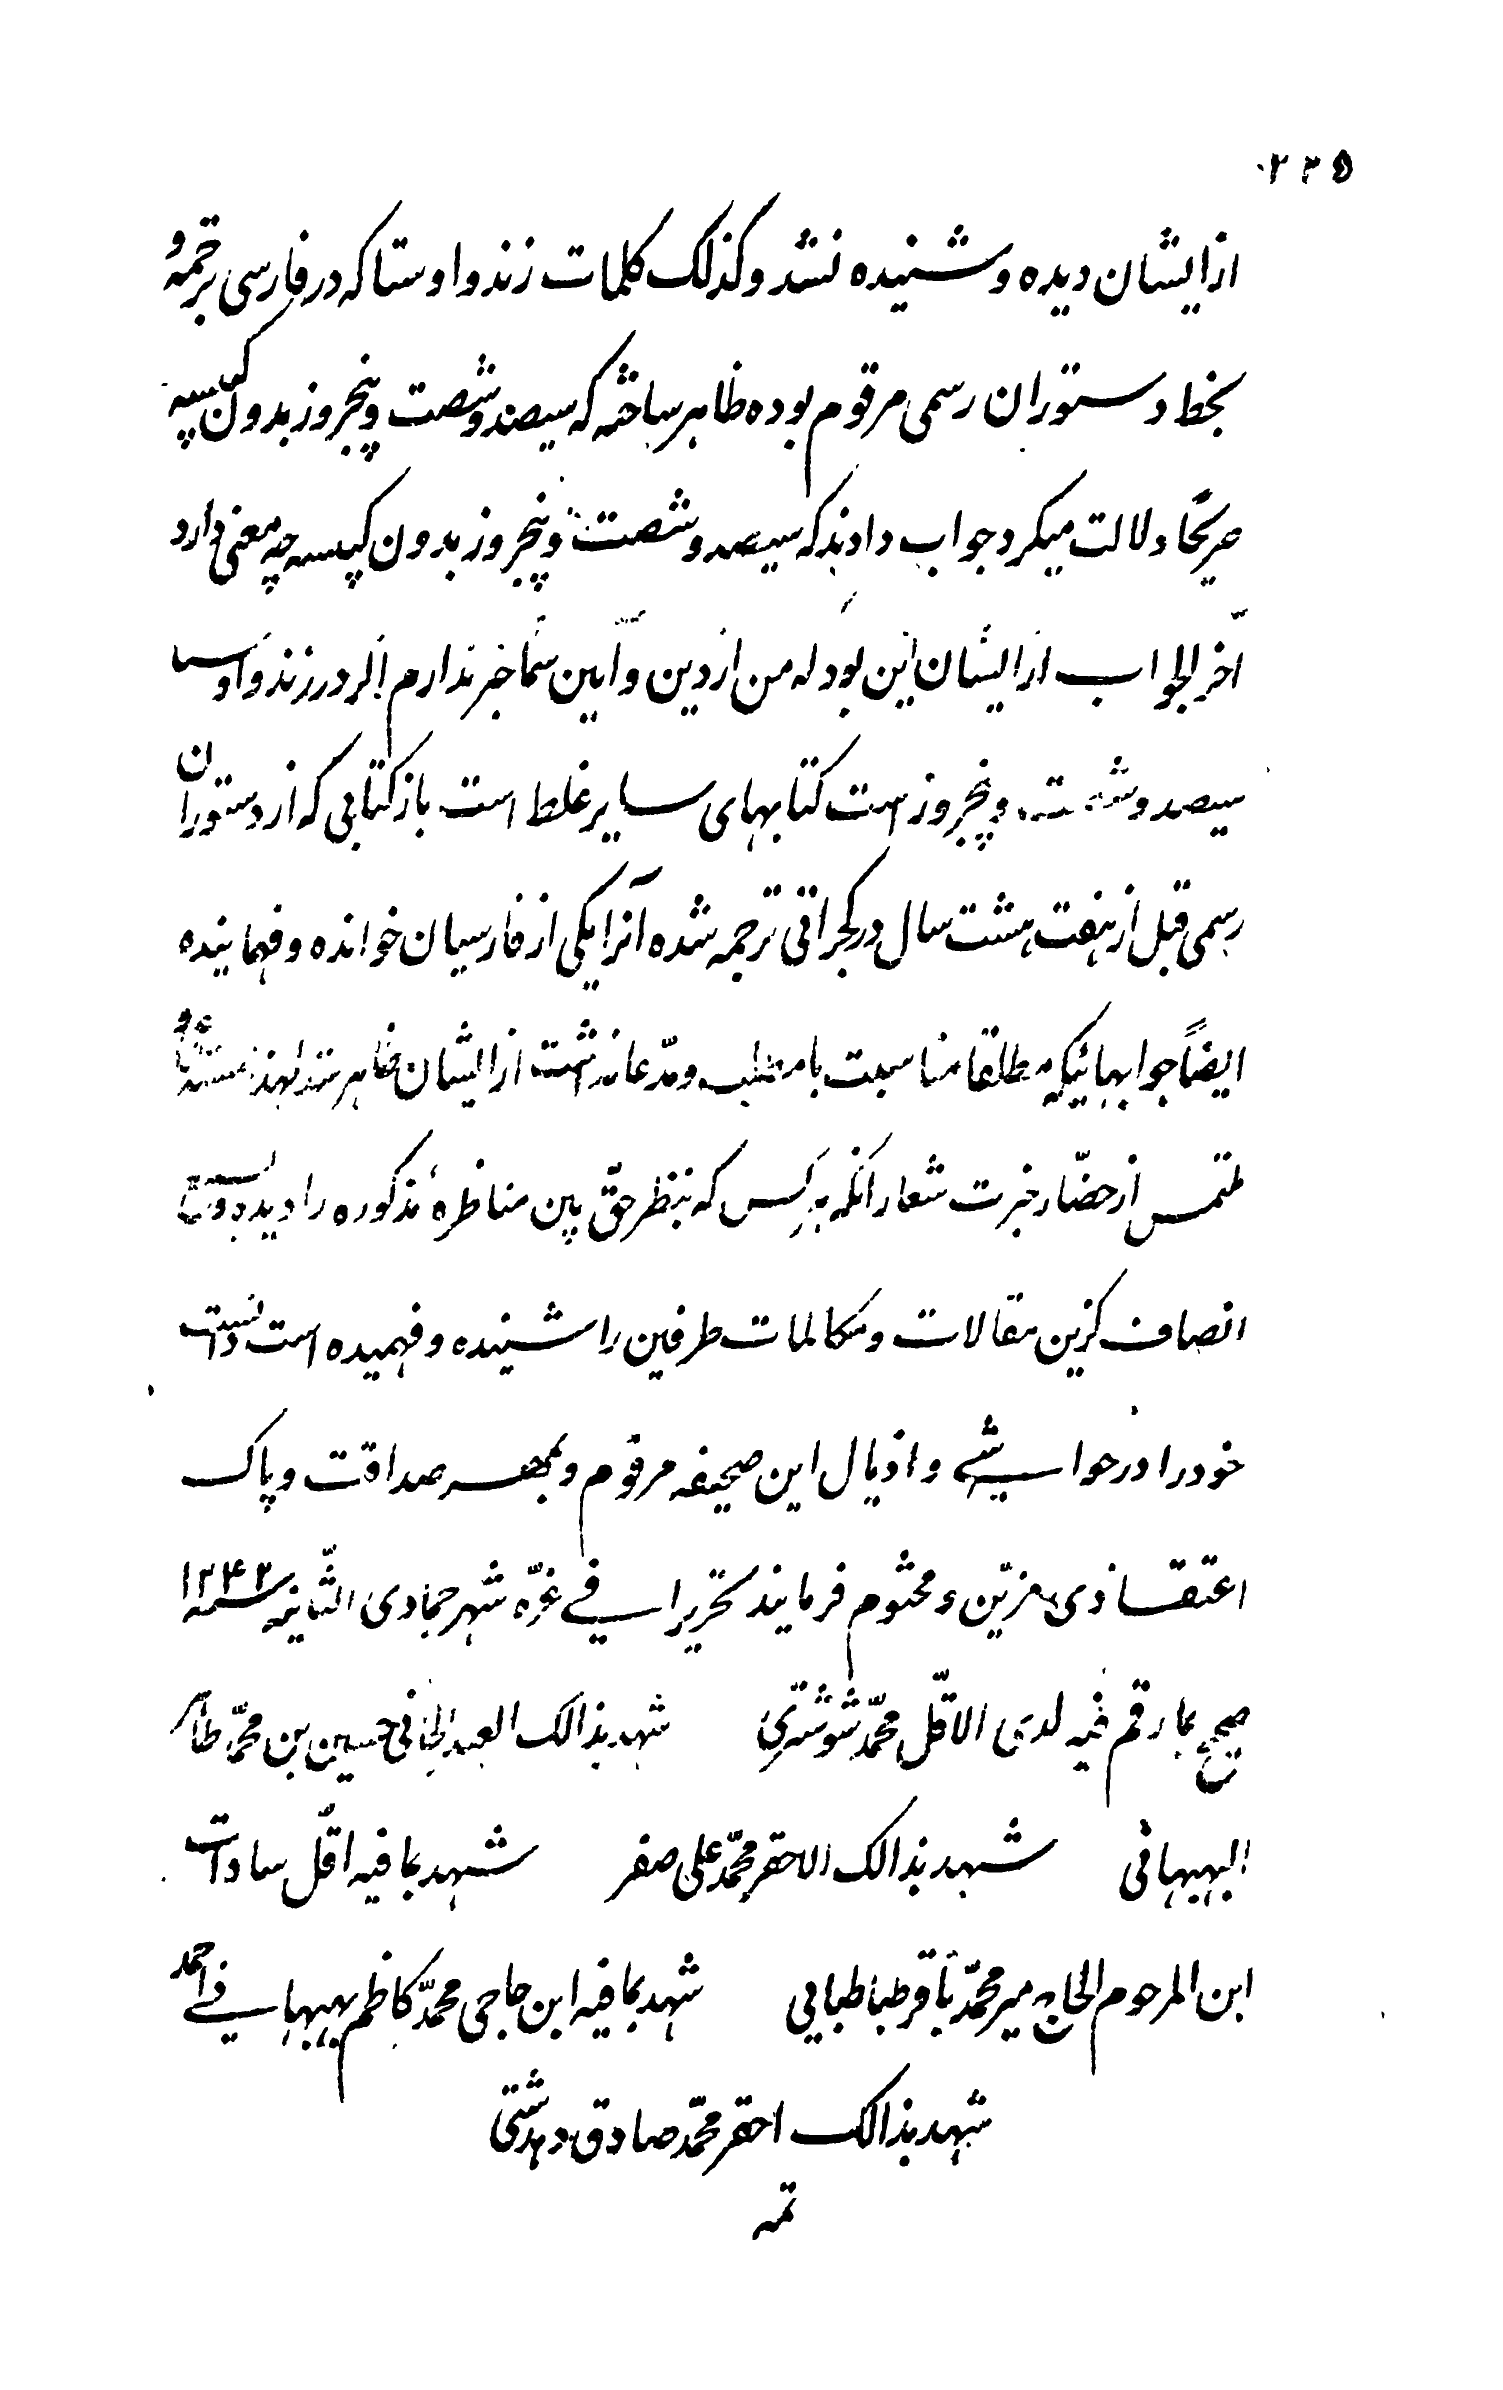 ۲۳۵
از ایشان دیده و شنیده نشد و کذلک کلمات زند و اوستا که در فارسی ترجمه و
بخط دستوران رسمی مرقوم بوده ظاهر ساخته که سیصد و شصت و پنجروز بدون کبیسه
صریحًا دلالت میکرد جواب دادند که سیصد و شصت و پنجروز بدون کبیسه چه معنی دارد
آخر الجواب از ایشان این بود که من از دین و آیین شما خبر ندارم اگر در زند و اوستا
سیصد و شصت و پنجروز است کتابهای سایر غلط است باز کتابی که از دستوران
رسمی قبل از هفت هشت سال در کجراتی ترجمه شده آنرا یکی از فارسیان خوانده و فهمانیده
ایضاً جوابهائیکه مطلقا مناسبت با مطلب و مدّعا نداشت از ایشان ظاهر شد لهذا
ملتمس از حضّار خبرت شعار آنکه هر کس که بنظر حقّ بین مناظرهٔ مذکوره را دیده و بسمع
انصاف گزین مقالات و مکالمات طرفین را شنیده و فهمیده است دانست
خود را در حواشی و اذیال این صحیفه مرقوم و بمهر صداقت و پاک
اعتقادی مزیّن و مختوم فرمایند تحریرا فی غرّه شهر جمادی الثّانیه سنه ۱۲۴۳
صحیح بما رقم فیه لدی الاقلّ محمّد شوشتری شهد بذالک العبد الجانی حسین بن محمّد طاهر
البهبهانی شهد بذالک الاحقر محمّد علی صفر شهد بما فیه اقلّ سادات
ابن المرحوم الحاج میر محمّد باقر طباطبایی شهد بما فیه ابن حاجی محمّد کاظم بهبهانی احمد
شهد بذالک احقر محمّد صادق دهدشتی
تمه